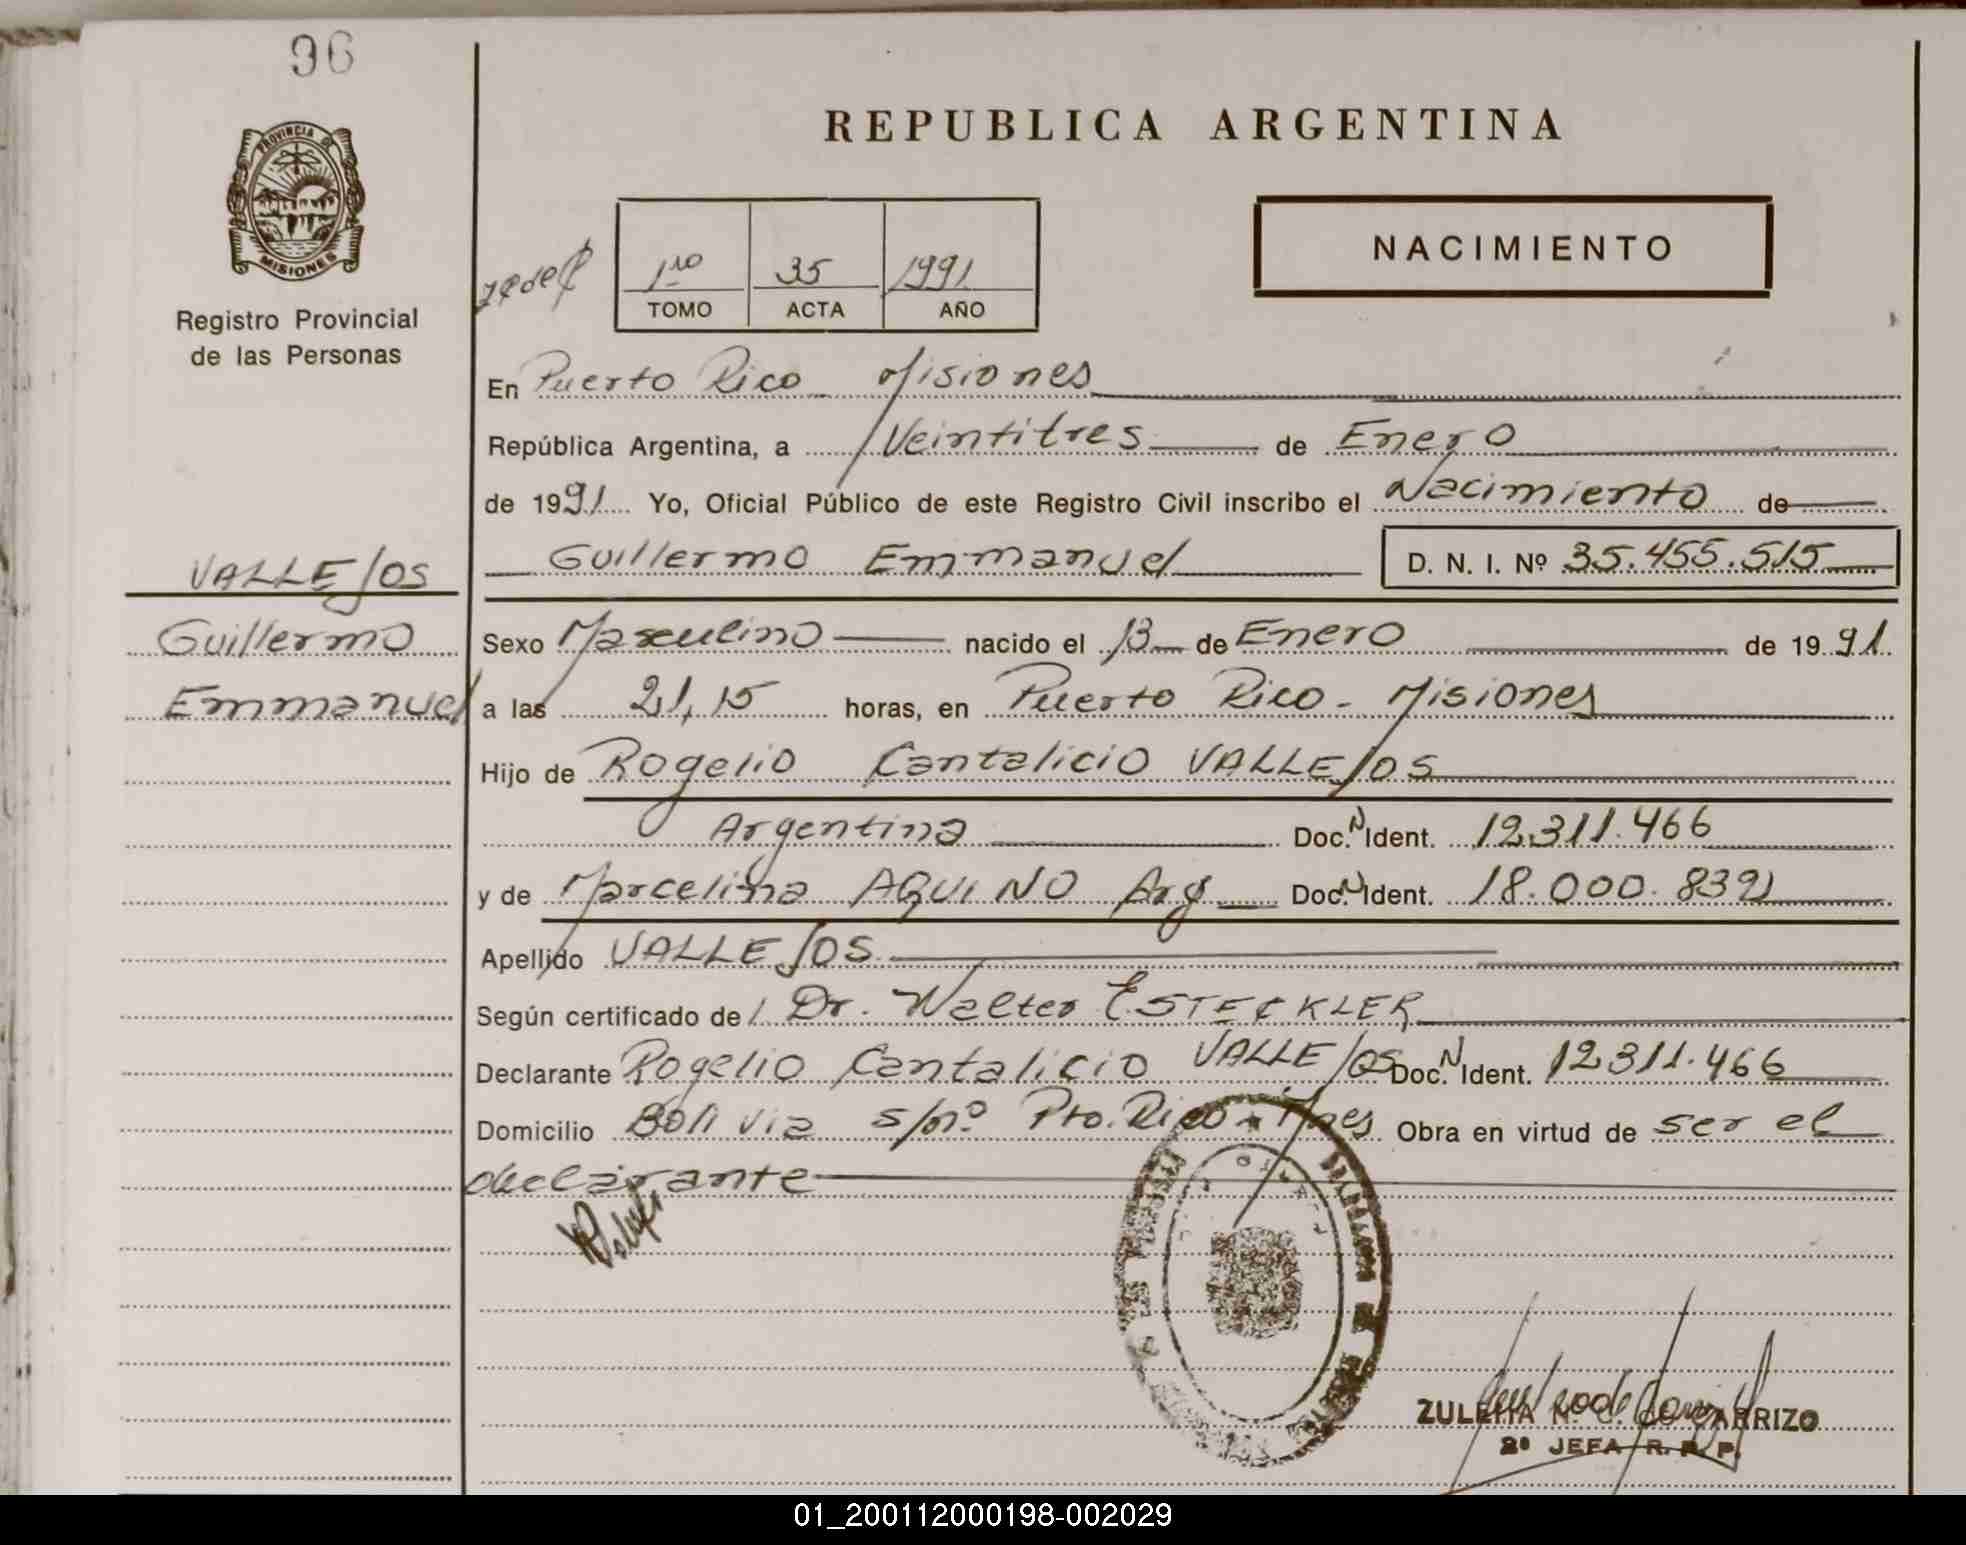 96
REPUBLICA ARGENTINA
PROVINCIA DE
MISIONES
Registro Provincial
de las Personas
1ro 35 1991
TOMO ACTA AÑO
NACIMIENTO
En Puerto Rico Misiones
República Argentina, a Veintitres de Enero
de 1991 Yo, Oficial Público de este Registro Civil inscribo el Nacimiento de
Guillermo Emmanuel D. N. I. Nº 35.455.515
VALLEJOS
Guillermo
Emmanuel
Sexo Masculino nacido el 13 de Enero de 1991
a las 21,15 horas, en Puerto Rico - Misiones
Hijo de Rogelio Cantalicio VALLEJOS
Argentina Doc. N Ident. 12.311.466
y de Marcelina AQUINO Arg Doc. N Ident. 18.000.832
Apellido VALLEJOS
Según certificado de Dr. Walter ESTECKLER
Declarante Rogelio Cantalicio VALLEJOS Doc. N Ident. 12311.466
Domicilio Bolivia s/nº Pto. Rico - Mnes Obra en virtud de ser el
declarante
ZULEMA N. C. de CARRIZO
2º JEFA R. P. P.
01_200112000198-002029